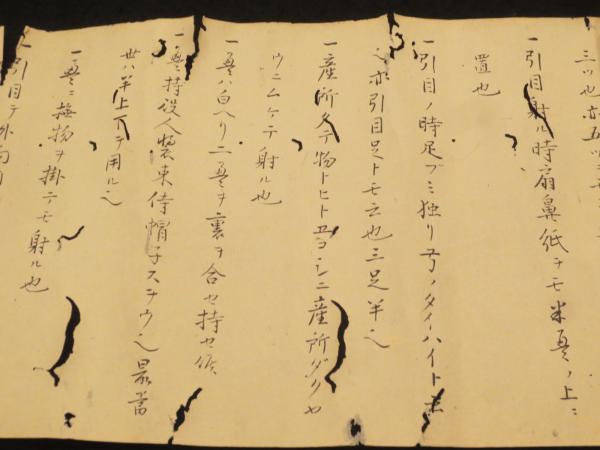 三ツ也亦五ツ
一引目射ル時扇鼻紙ナモ米畳ノ上ニ
置也
一引目ノ時足ブミ独リ弓ノタイハイト
亦引目足トモ云也三足半之
一産所タテ物トヒト ニ産所ダクヤ
ウニムケテ射ル也
一畳ハ白ヘリ二畳ヲ裏ヲ合セ持セ候
一畳持役人装束侍帽子スヲウ之
世ハ半上下ヲ用ル之
一畳ニ 物ヲ掛テモ射ル也
一引目テ外